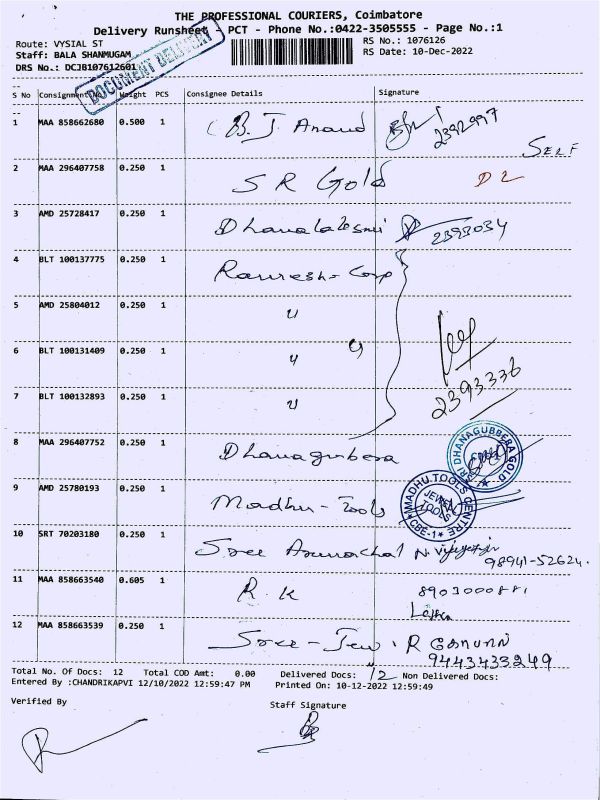 THE PROFESSIONAL COURIERS, Coimbatore
Delivery Runsheet - PCT - Phone No.:0422-3505555 - Page No.:1
Route: VYSIAL ST RS No.: 1076126
Staff: BALA SHANMUGAM RS Date: 10-Dec-2022
DRS No.: DCJB107612601
DOCUMENT DELIVERY
S No Consignment No Weight PCS Consignee Details Signature
1 MAA 858662680 0.500 1 B. J. Anand 2392997
SELF
2 MAA 296407758 0.250 1 S R Gold D2
3 AMD 25728417 0.250 1 2393034
4 BLT 100137775 0.250 1 Ramesh Corp
5 AMD 25804012 0.250 1 "
6 BLT 100131409 0.250 1 " "
7 BLT 100132893 0.250 1 " 2393336
8 MAA 296407752 0.250 1 Dhanagubera
SRI DHANAGUBBERA GOLD
9 AMD 25780193 0.250 1 Madhu-Tools
MADHU TOOLS CENTRE CBE-1 JEWEL TOOLS
10 SRT 70203180 0.250 1 Sree Arunachal 98941-52624.
11 MAA 858663540 0.605 1 R. K 8903000881
12 MAA 858663539 0.250 1 Sree - Jew R
9443433249
Total No. Of Docs: 12 Total COD Amt: 0.00 Delivered Docs: 12 Non Delivered Docs:
Entered By :CHANDRIKAPVI 12/10/2022 12:59:47 PM Printed On: 10-12-2022 12:59:49
Verified By Staff Signature